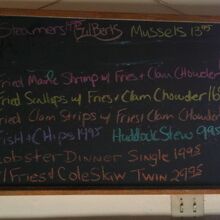 Steamers 14.95 Ful Belly's Mussels 13.95
Fried Maine Shrimp w/ Fries + Clam Chowder
Fried Scallops w/ Fries + Clam Chowder 16
Fried Clam Strips w/ Fries + Clam Chowder
Fish & Chips 14.95 Haddock Stew 9.95
Lobster Dinner Single 19.95
w/ Fries & Cole Slaw Twin 29.95